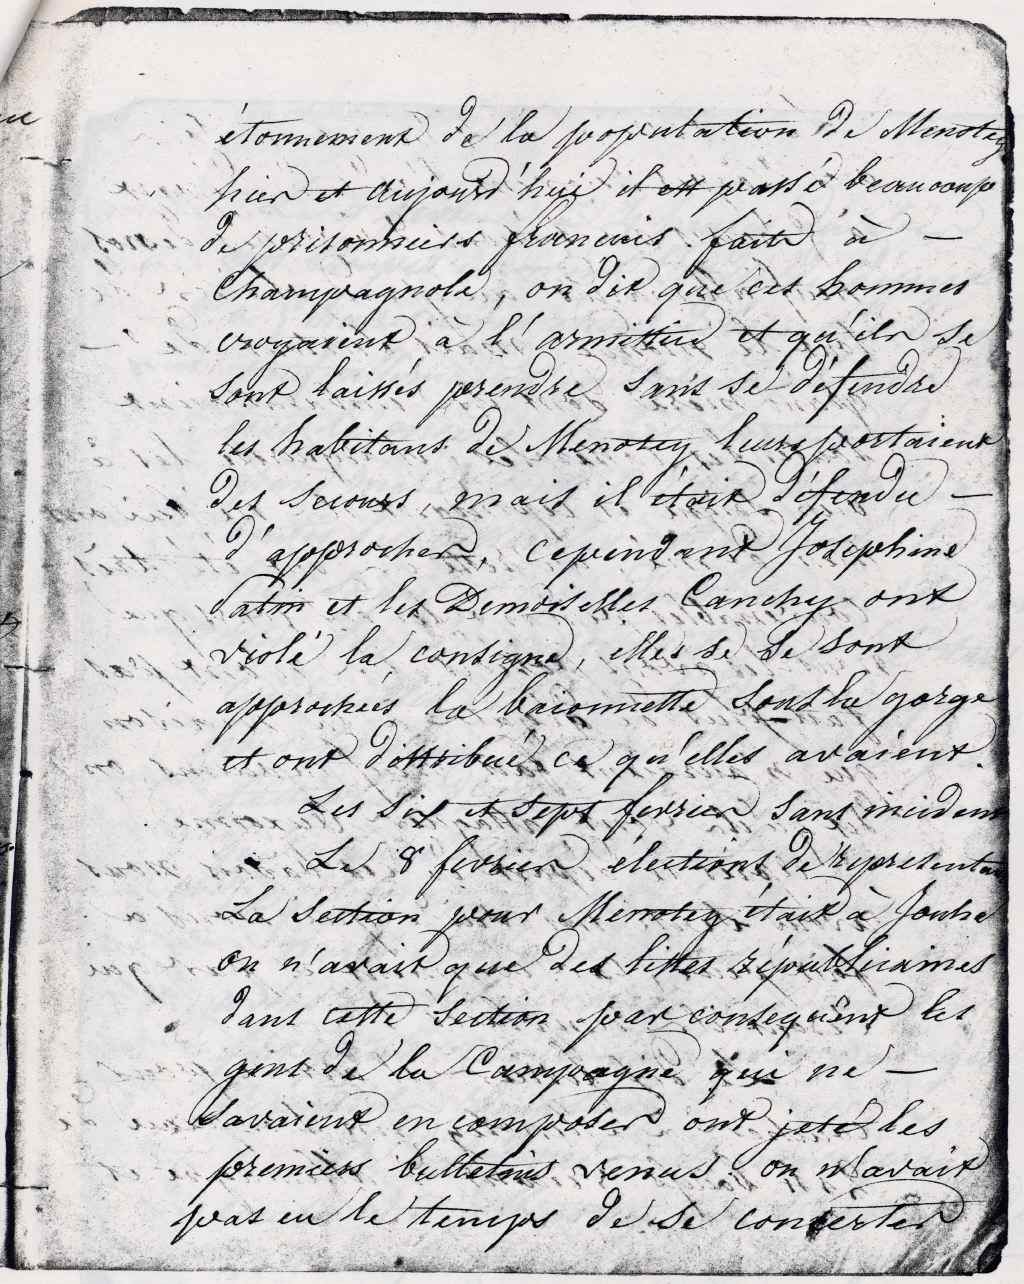 étonnement de la population de Menotey
hier et aujourd'hui il est passé beaucoup
de prisonniers francais fait à –
Champagnole, on dit que ces hommes
croyaient à l'armistice et qu'ils se
sont laissés prendre sans se défendre
les habitans de Menotey leurs portaient
des secours, mais il était défendu –
d'approcher, cependant Joséphine
Patin et les Demoiselles Canchy ont
violé la consigne, elles se se sont
approchées la baionnette sous la gorge
et ont distribué ce qu'elles avaient.
Les six et sept fevrier sans incident
Le 8 fevrier élections de représentan
La section pour Menotey était à Jouhe
on n'avait que des listes républicaines
dans cette section par conséquent les
gens de la Campagne qui ne –
savaient en composer ont jeté les
premiers bulletins venus on n'avait
pas eu le temps de se concerter